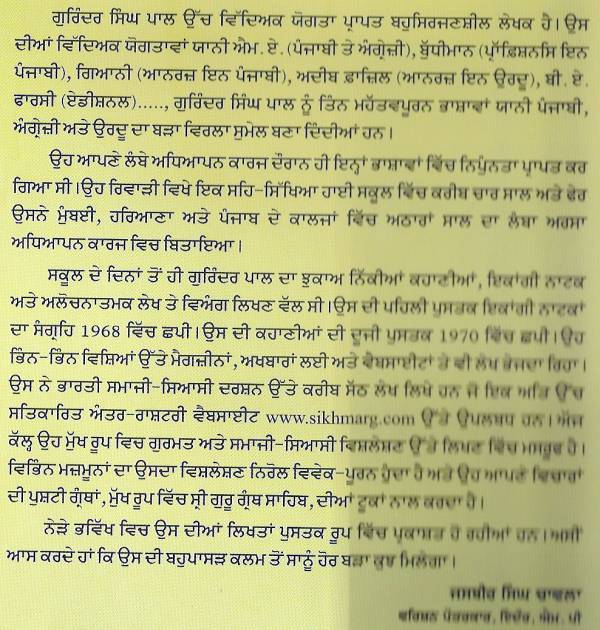 ਗੁਰਿੰਦਰ ਸਿੰਘ ਪਾਲ ਉੱਚ ਵਿੱਦਿਅਕ ਯੋਗਤਾ ਪ੍ਰਾਪਤ ਬਹੁਸਿਰਜਣਸ਼ੀਲ ਲੇਖਕ ਹੈ। ਉਸ
ਦੀਆਂ ਵਿੱਦਿਅਕ ਯੋਗਤਾਵਾਂ ਯਾਨੀ ਐਮ.ਏ.(ਪੰਜਾਬੀ ਤੇ ਅੰਗ੍ਰੇਜ਼ੀ), ਬੁੱਧੀਮਾਨ (ਪ੍ਰਾੱਫ਼ਿਸ਼ਨਸਿ ਇਨ
ਪੰਜਾਬੀ), ਗਿਆਨੀ (ਆਨਰਜ਼ ਇਨ ਪੰਜਾਬੀ), ਅਦੀਬ ਫ਼ਾਜ਼ਿਲ (ਆਨਰਜ਼ ਇਨ ਉਰਦੂ), ਬੀ. ਏ.
ਫਾਰਸੀ (ਏਡੀਸ਼ਨਲ)....., ਗੁਰਿੰਦਰ ਸਿੰਘ ਪਾਲ ਨੂੰ ਤਿਨ ਮਹੱਤਵਪੂਰਨ ਭਾਸ਼ਾਵਾਂ ਯਾਨੀ ਪੰਜਾਬੀ,
ਅੰਗ੍ਰੇਜ਼ੀ ਅਤੇ ਉਰਦੂ ਦਾ ਬੜਾ ਵਿਰਲਾ ਸੁਮੇਲ ਬਣਾ ਦਿੰਦੀਆਂ ਹਨ।
ਉਹ ਆਪਣੇ ਲੰਬੇ ਅਧਿਆਪਨ ਕਾਰਜ ਦੌਰਾਨ ਹੀ ਇਨ੍ਹਾਂ ਭਾਸ਼ਾਵਾਂ ਵਿੱਚ ਨਿਪੁੰਨਤਾ ਪ੍ਰਾਪਤ ਕਰ
ਗਿਆ ਸੀ। ਉਹ ਰਿਵਾੜੀ ਵਿਖੇ ਇਕ ਸਹਿ-ਸਿੱਖਿਆ ਹਾਈ ਸਕੂਲ ਵਿੱਚ ਕਰੀਬ ਚਾਰ ਸਾਲ ਅਤੇ ਫੇਰ
ਉਸਨੇ ਮੁੰਬਈ, ਹਰਿਆਣਾ ਅਤੇ ਪੰਜਾਬ ਦੇ ਕਾਲਜਾਂ ਵਿੱਚ ਅਠਾਰਾਂ ਸਾਲ ਦਾ ਲੰਬਾ ਅਰਸਾ
ਅਧਿਆਪਨ ਕਾਰਜ ਵਿਚ ਬਿਤਾਇਆ।
ਸਕੂਲ ਦੇ ਦਿਨਾਂ ਤੋਂ ਹੀ ਗੁਰਿੰਦਰ ਪਾਲ ਦਾ ਝੁਕਾਅ ਨਿੱਕੀਆਂ ਕਹਾਣੀਆਂ, ਇਕਾਂਗੀ ਨਾਟਕ
ਅਤੇ ਅਲੋਚਨਾਤਮਕ ਲੇਖ ਤੇ ਵਿਅੰਗ ਲਿਖਣ ਵੱਲ ਸੀ। ਉਸ ਦੀ ਪਹਿਲੀ ਪੁਸਤਕ ਇਕਾਂਗੀ ਨਾਟਕਾਂ
ਦਾ ਸੰਗ੍ਰਹਿ 1968 ਵਿੱਚ ਛਪੀ। ਉਸ ਦੀ ਕਹਾਣੀਆਂ ਦੀ ਦੂਜੀ ਪੁਸਤਕ 1970 ਵਿੱਚ ਛਪੀ। ਉਹ
ਭਿੰਨ-ਭਿੰਨ ਵਿਸ਼ਿਆਂ ਉੱਤੇ ਮੈਗਜ਼ੀਨਾਂ, ਅਖਬਾਰਾਂ ਲਈ ਅਤੇ ਵੈਬਸਾਈਟਾਂ ਤੇ ਵੀ ਲੇਖ ਭੇਜਦਾ ਰਿਹਾ।
ਉਸ ਨੇ ਭਾਰਤੀ ਸਮਾਜੀ-ਸਿਆਸੀ ਦਰਸ਼ਨ ਉੱਤੇ ਕਰੀਬ ਸੱਠ ਲੇਖ ਲਿਖੇ ਹਨ ਜੋ ਇਕ ਅਤਿ ਉੱਚ
ਸਤਿਕਾਰਿਤ ਅੰਤਰ-ਰਾਸ਼ਟਰੀ ਵੈਬਸਾਈਟ www.sikhmarg.com ਉੱਤੇ ਉਪਲਬਧ ਹਨ। ਅੱਜ
ਕੱਲ੍ਹ ਉਹ ਮੁੱਖ ਰੂਪ ਵਿਚ ਗੁਰਮਤ ਅਤੇ ਸਮਾਜੀ-ਸਿਆਸੀ ਵਿਸ਼ਲੇਸ਼ਣ ਉੱਤੇ ਲਿਖਣ ਵਿੱਚ ਮਸਰੂਫ ਹੈ।
ਵਿਭਿੰਨ ਮਜ਼ਮੂਨਾਂ ਦਾ ਉਸਦਾ ਵਿਸ਼ਲੇਸ਼ਣ ਨਿਰੋਲ ਵਿਵੇਕ-ਪੂਰਨ ਹੁੰਦਾ ਹੈ ਅਤੇ ਉਹ ਆਪਣੇ ਵਿਚਾਰਾਂ
ਦੀ ਪੁਸ਼ਟੀ ਗ੍ਰੰਥਾਂ, ਮੁੱਖ ਰੂਪ ਵਿੱਚ ਸ੍ਰੀ ਗੁਰੂ ਗ੍ਰੰਥ ਸਾਹਿਬ, ਦੀਆਂ ਟੂਕਾਂ ਨਾਲ ਕਰਦਾ ਹੈ।
ਨੇੜੇ ਭਵਿੱਖ ਵਿਚ ਉਸ ਦੀਆਂ ਲਿਖਤਾਂ ਪੁਸਤਕ ਰੂਪ ਵਿੱਚ ਪ੍ਰਕਾਸ਼ਤ ਹੋ ਰਹੀਆਂ ਹਨ। ਅਸੀਂ
ਆਸ ਕਰਦੇ ਹਾਂ ਕਿ ਉਸ ਦੀ ਬਹੁਪਾਸੜ ਕਲਮ ਤੋਂ ਸਾਨੂੰ ਹੋਰ ਬੜਾ ਕੁਝ ਮਿਲੇਗਾ।
ਜਸਬੀਰ ਸਿੰਘ ਚਾਵਲਾ
ਵਰਿਸ਼ਨ ਪੱਤਰਕਾਰ, ਇੰਦੌਰ, ਐਮ. ਪੀ